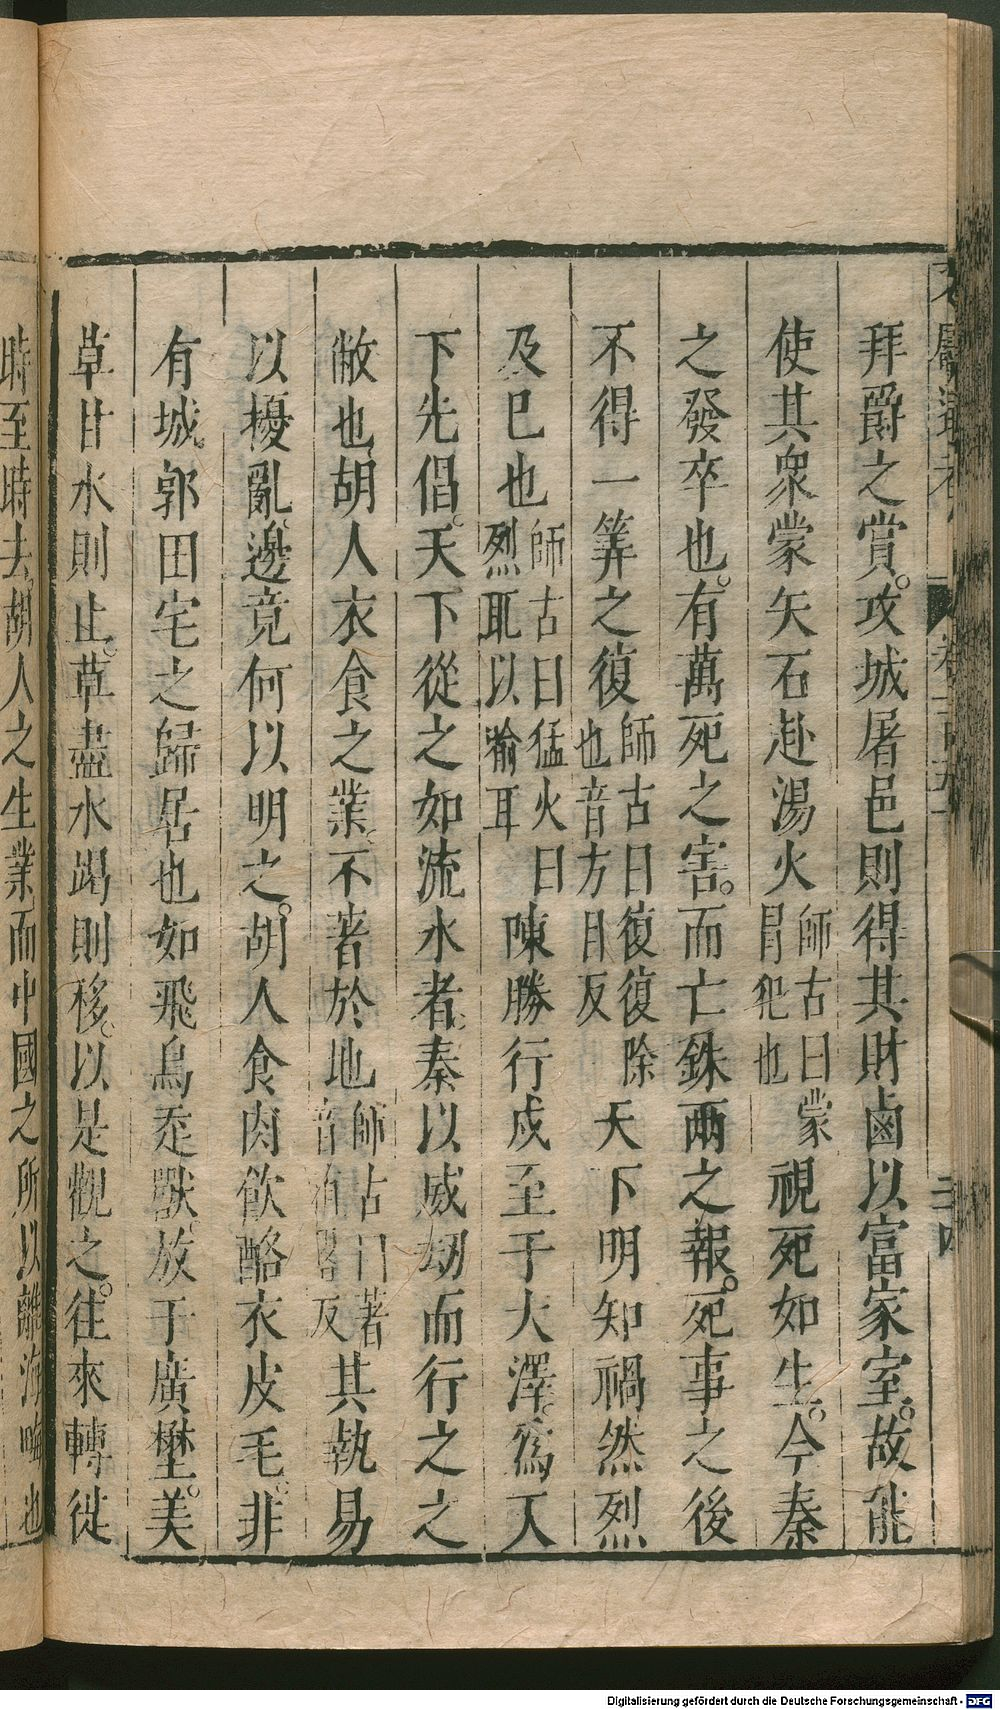 拜爵之賞。攻城屠邑則得其財鹵以富家室。故能
使其衆蒙矢石赴湯火師古曰蒙冒犯也視死如生。今秦
之發卒也。有萬死之害。而亡銖兩之報。死事之後
不得一筭之復師古曰復復除也音方目反天下明知禍然烈
及巳也師古曰猛火曰烈耴以喻耳陳勝行戍至于大澤。爲天
下先倡。天下從之如流水者。秦以威劫而行之之
敝也。胡人衣食之業。不著於地師古曰著音直略反其埶易
以擾亂。邊竟何以明之。胡人食肉飲酪衣皮毛。非
有城郭田宅之歸居也如飛鳥走獸。放于廣壄。美
草甘水則止。草盡水竭則移。以是觀之。往來轉徙
時至時去。胡人之生業而中國之所以離海晦也
Digitalisierung gefördert durch die Deutsche Forschungsgemeinschaft - DFG